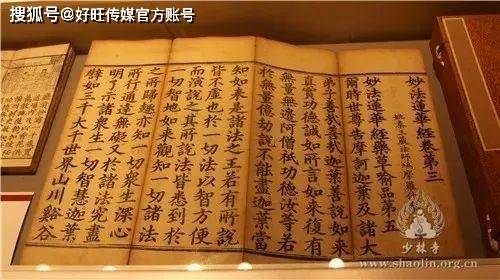 搜狐号@好旺传媒官方账号
妙法蓮華經卷第三
姚秦三藏法師鳩摩羅
妙法蓮華經藥草喻品第五
爾時世尊告摩訶迦葉及諸大
弟子善哉善哉迦葉善說如來
真實功德誠如所言如來復有
無量無邊阿僧祇功德汝等若
於無量億劫說不能盡迦葉當
知如來是諸法之王若有所說
皆不虛也於一切法以智方便
而演說之其所說法皆悉到於
一切智地如來觀知一切諸法
之所歸趣亦知一切眾生深心
所行通達無礙又於諸法究盡
明了示諸眾生一切智慧迦葉
譬如三千大千世界山川谿谷
少林寺
www.shaolin.org.cn